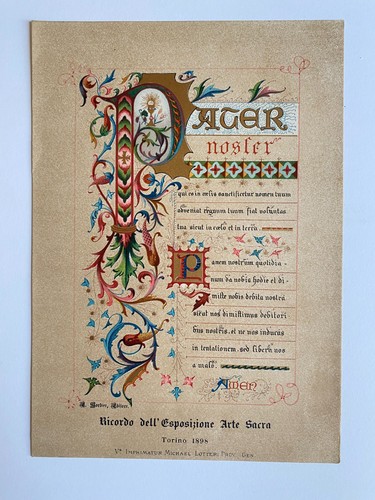 PATER
noster
qui es in cœlis sanctificetur nomen tuum
adveniat regnum tuum. fiat voluntas
tua sicut in cœlo et in terra.
Panem nostrum quotidia-
num da nobis hodie et di-
mitte nobis debita nostra
sicut nos dimittimus debitori
bus nostris. et ne nos inducas
in tentationem. sed libera nos
a malo.
Amen
Ricordo dell'Esposizione Arte Sacra
Torino 1898
Vº IMPRIMATUR MICHAEL LOTTERI PROV. GEN.